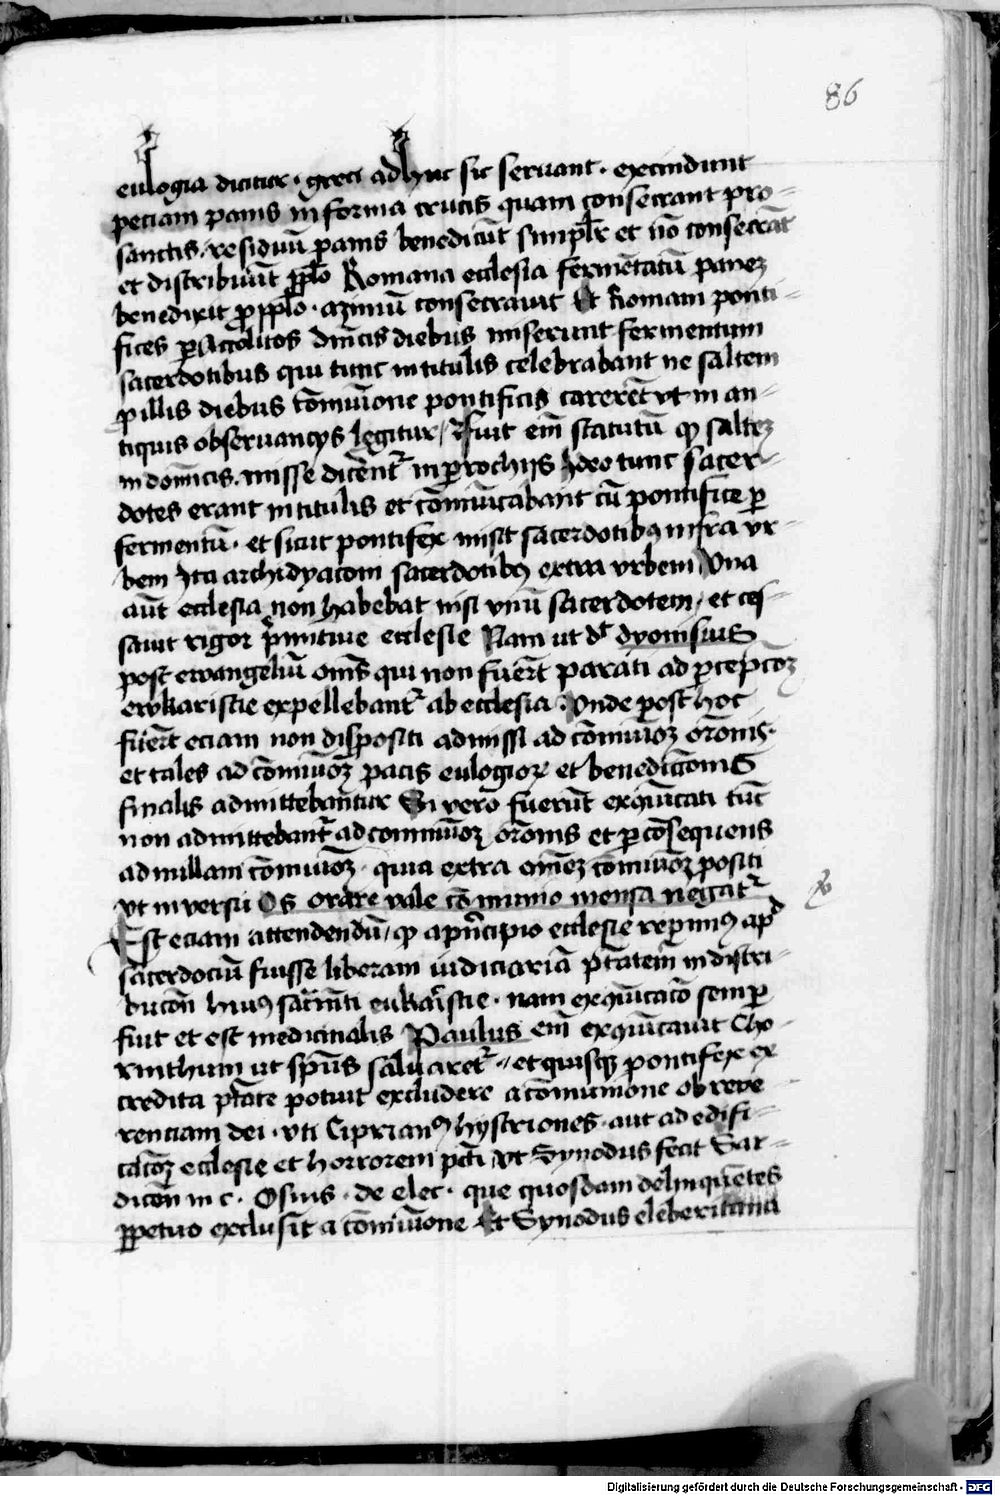 86
eulogia dicitur · greci adhuc sic servant · excindunt
peciam panis in forma crucis quam consecrant pro-
sanctis · residuū panis benedicūt simplr et nō consecrāt
et distribuūt pplo Romana ecclesia fermētatū panez
benedixit p pplo · azimū consecravit Et Romani ponti-
fices p Accolitos dnicis diebus miserunt fermentum
sacerdotibus qui tunc in titulis celebrabant ne saltem
p illis diebus cōmuione pontificis carerēt vt in an-
tiquis observancijs legitur / Fuit em̄ statutū qp saltez
in domicis · misse dicent in prochijs Ideo tunc sacer-
dotes erant in titulis et cōmuicabant cū pontifice p
fermentū · et sicut pontifex misit sacerdotibꝰ infra vr-
bem Ita archidyaconi sacerdotibꝰ extra vrbem Vna
aūt ecclesia non habebat nisi vnū sacerdotem / et ces-
savit rigor primitiue ecclesie Nam ut dr dyonisius
post ewangeliū om̄s qui non fuerīt parati ad pcepcōz
ewkaristie expellebantr ab ecclesia · Vnde post hoc
fuerīt eciam non dispositi admissi ad cōmuioz orōnis ·
et tales ad cōmuioz pacis eulogioꝝ et benediccionis
finalis admittebantur Si vero fuerūt exqūicati tūc
non admittebantr ad commuioz orōnis et p cōsequens
ad nullam cōmuioz · quia extra om̄ez cōmuioz positi
vt in versu Os orare vale cōmunio mensa negatr
Est eciam attendendū / qp a pncipio ecclesie repimꝰ apd
sacerdociū fuisse liberam iudiciariā ptatem in distri-
bucōn huiꝰ sacrmti eukaristie · nam exqūicacō semp
fuit et est medicinalis Paulus em̄ exqūicavit Cho-
rinthum ut spūs salvaretr · et quisqz pontifex ex
credita ptāte potuit excludere a cōmunione ob reve-
renciam dei · vti Ciprianꝰ hystriones · aut ad edifi-
cacōz ecclesie et horrorem pcti vt Synodus fecit Sar-
dicen̄ in c · Osius · de elec · que quosdam delinquētes
ppetuo exclusit a cōmuione Et Synodus eleberitana
Digitalisierung gefördert durch die Deutsche Forschungsgemeinschaft - DFG